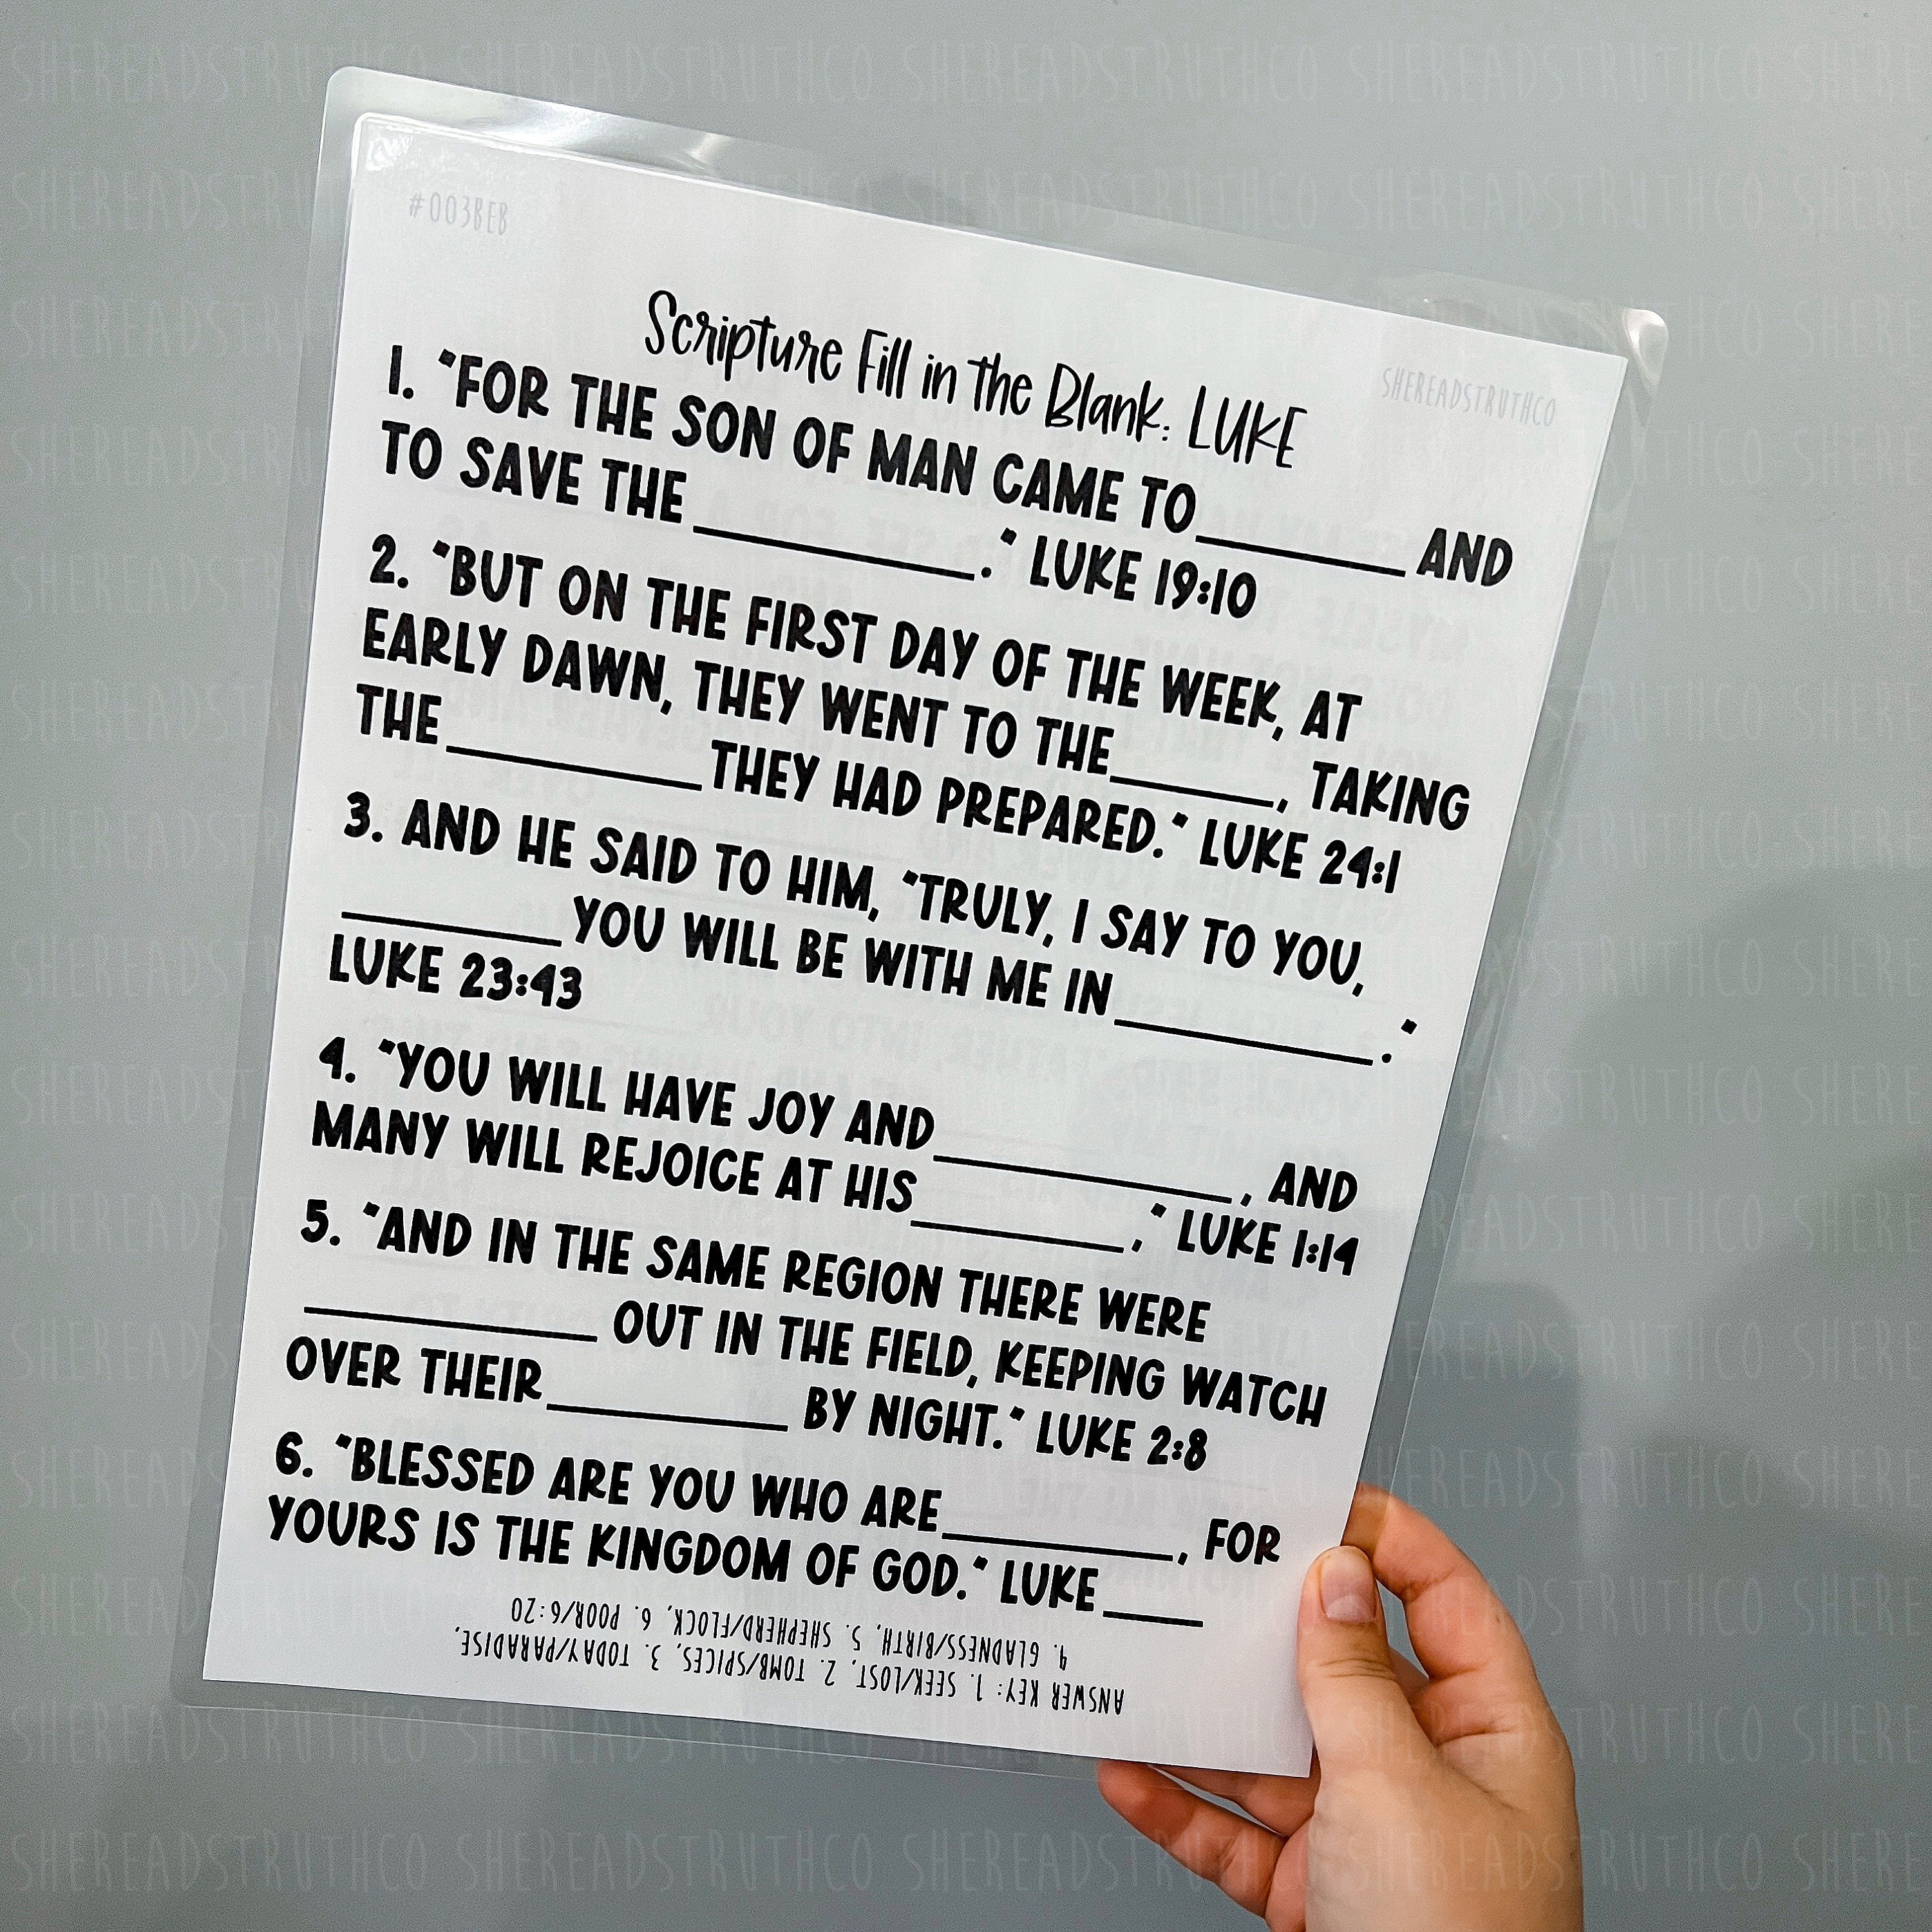 #003BEB
SHEREADSTRUTHCO
Scripture Fill in the Blank: LUKE
1. "FOR THE SON OF MAN CAME TO ________ AND
TO SAVE THE ________." LUKE 19:10
2. "BUT ON THE FIRST DAY OF THE WEEK, AT
EARLY DAWN, THEY WENT TO THE ________, TAKING
THE ________ THEY HAD PREPARED." LUKE 24:1
3. AND HE SAID TO HIM, "TRULY, I SAY TO YOU,
________ YOU WILL BE WITH ME IN ________."
LUKE 23:43
4. "YOU WILL HAVE JOY AND ________, AND
MANY WILL REJOICE AT HIS ________," LUKE 1:14
5. "AND IN THE SAME REGION THERE WERE
________ OUT IN THE FIELD, KEEPING WATCH
OVER THEIR ________ BY NIGHT." LUKE 2:8
6. "BLESSED ARE YOU WHO ARE ________, FOR
YOURS IS THE KINGDOM OF GOD." LUKE ____
ANSWER KEY: 1. SEEK/LOST, 2. TOMB/SPICES, 3. TODAY/PARADISE,
4. GLADNESS/BIRTH, 5. SHEPHERD/FLOCK, 6. POOR/6:20